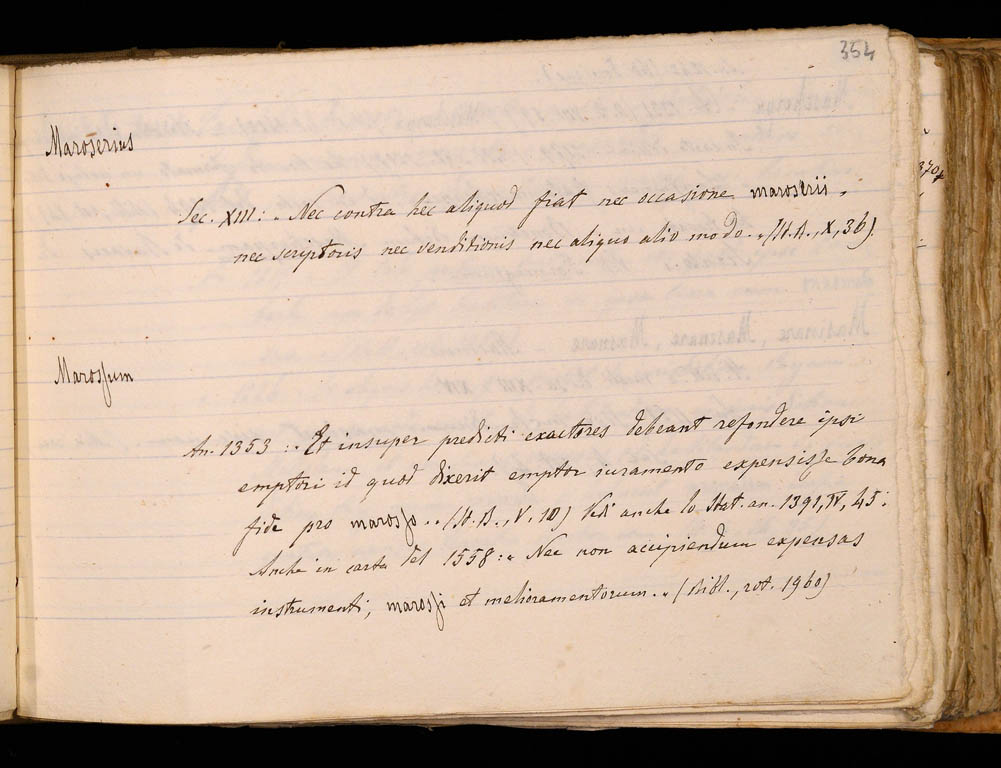 354
Maroserius
Sec. XIII: „ Nec contra hec aliquod fiat nec occasione maroserii,
nec scriptoris nec venditionis nec aliquo alio modo. „ (St. A., X, 36).
Marossum
An. 1353 : „ Et insuper predicti exactores debeant refondere ipsi
emptori id quod dixerit emptor iuramento expensisse bona
fide pro marosso. „ (St. B., V. 10) Vedi anche lo Stat. an. 1391, IV, 45:
Anche in carta del 1558: „ Nec non accipiendum expensas
instrumenti, marossi et melioramentorum. „ (Bibl., rot. 1960)
370